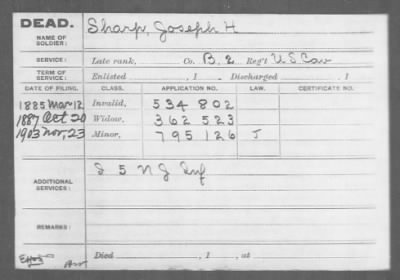 DEAD.
NAME OF SOLDIER: Sharp, Joseph H
SERVICE: Late rank, Co. B. 2 Reg't U.S. Cav
TERM OF SERVICE: Enlisted , 1 . Discharged , 1
DATE OF FILING. CLASS. APPLICATION NO. LAW. CERTIFICATE NO.
1885 Mar 12 Invalid, 534 802
1887 Oct 20 Widow, 362 523
1903 Nov. 23 Minor, 795 126 J
ADDITIONAL SERVICES: 5 N J Inf
REMARKS:
Died , 1 , at